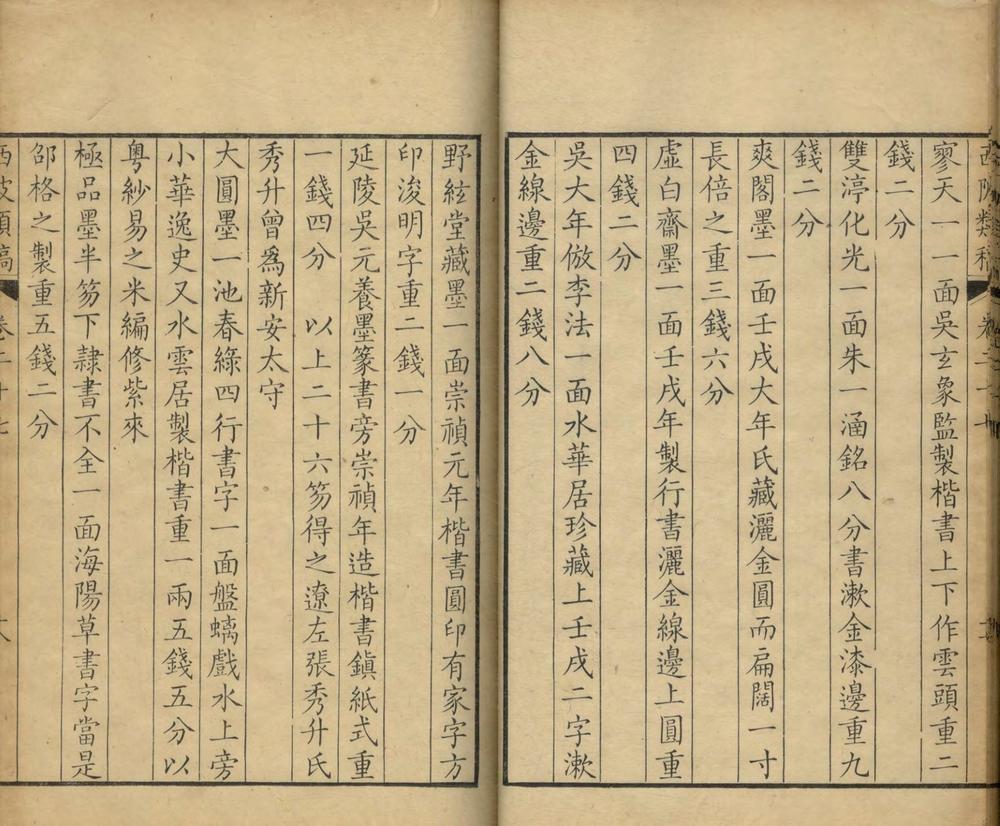 西陂類稿 卷二十七
寥天一一面吳玄象監製楷書上下作雲頭重二
錢二分
雙渟化光一面朱一涵銘八分書漱金漆邊重九
錢二分
爽閣墨一面壬戌大年氏藏灑金圓而扁闊一寸
長倍之重三錢六分
虛白齋墨一面壬戌年製行書灑金線邊上圓重
四錢二分
吳大年倣李法一面水華居珍藏上壬戌二字漱
金線邊重二錢八分
野絃堂藏墨一面崇禎元年楷書圓印有家字方
印浚明字重二錢一分
延陵吳元養墨篆書旁崇禎年造楷書鎮紙式重
一錢四分 以上二十六笏得之遼左張秀升氏
秀升曾爲新安太守
大圓墨一池春綠四行書字一面盤螭戲水上旁
小華逸史又水雲居製楷書重一兩五錢五分以
粤紗易之米編修紫來
極品墨半笏下隷書不全一面海陽草書字當是
邵格之製重五錢二分
西陂類稿 卷二十七